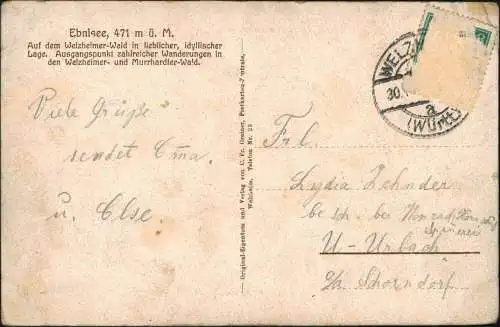 Ebnisee, 471 m ü. M.
Auf dem Welzheimer-Wald in lieblicher, idyllischer
Lage. Ausgangspunkt zahlreicher Wanderungen in
den Welzheimer- und Murrhardter-Wald.
Viele Grüße
sendet Oma
u. Else.
Original-Eigentum und Verlag von C. Fr. Greiner, Postkarten-Zentrale,
Welzheim, Telefon Nr. 23
WELZ
30.
a
(Württ.)
Frl.
Lydia Zehnder
besch. bei Konrad
Spinnerei
U-Urbach
b/a Schorndorf